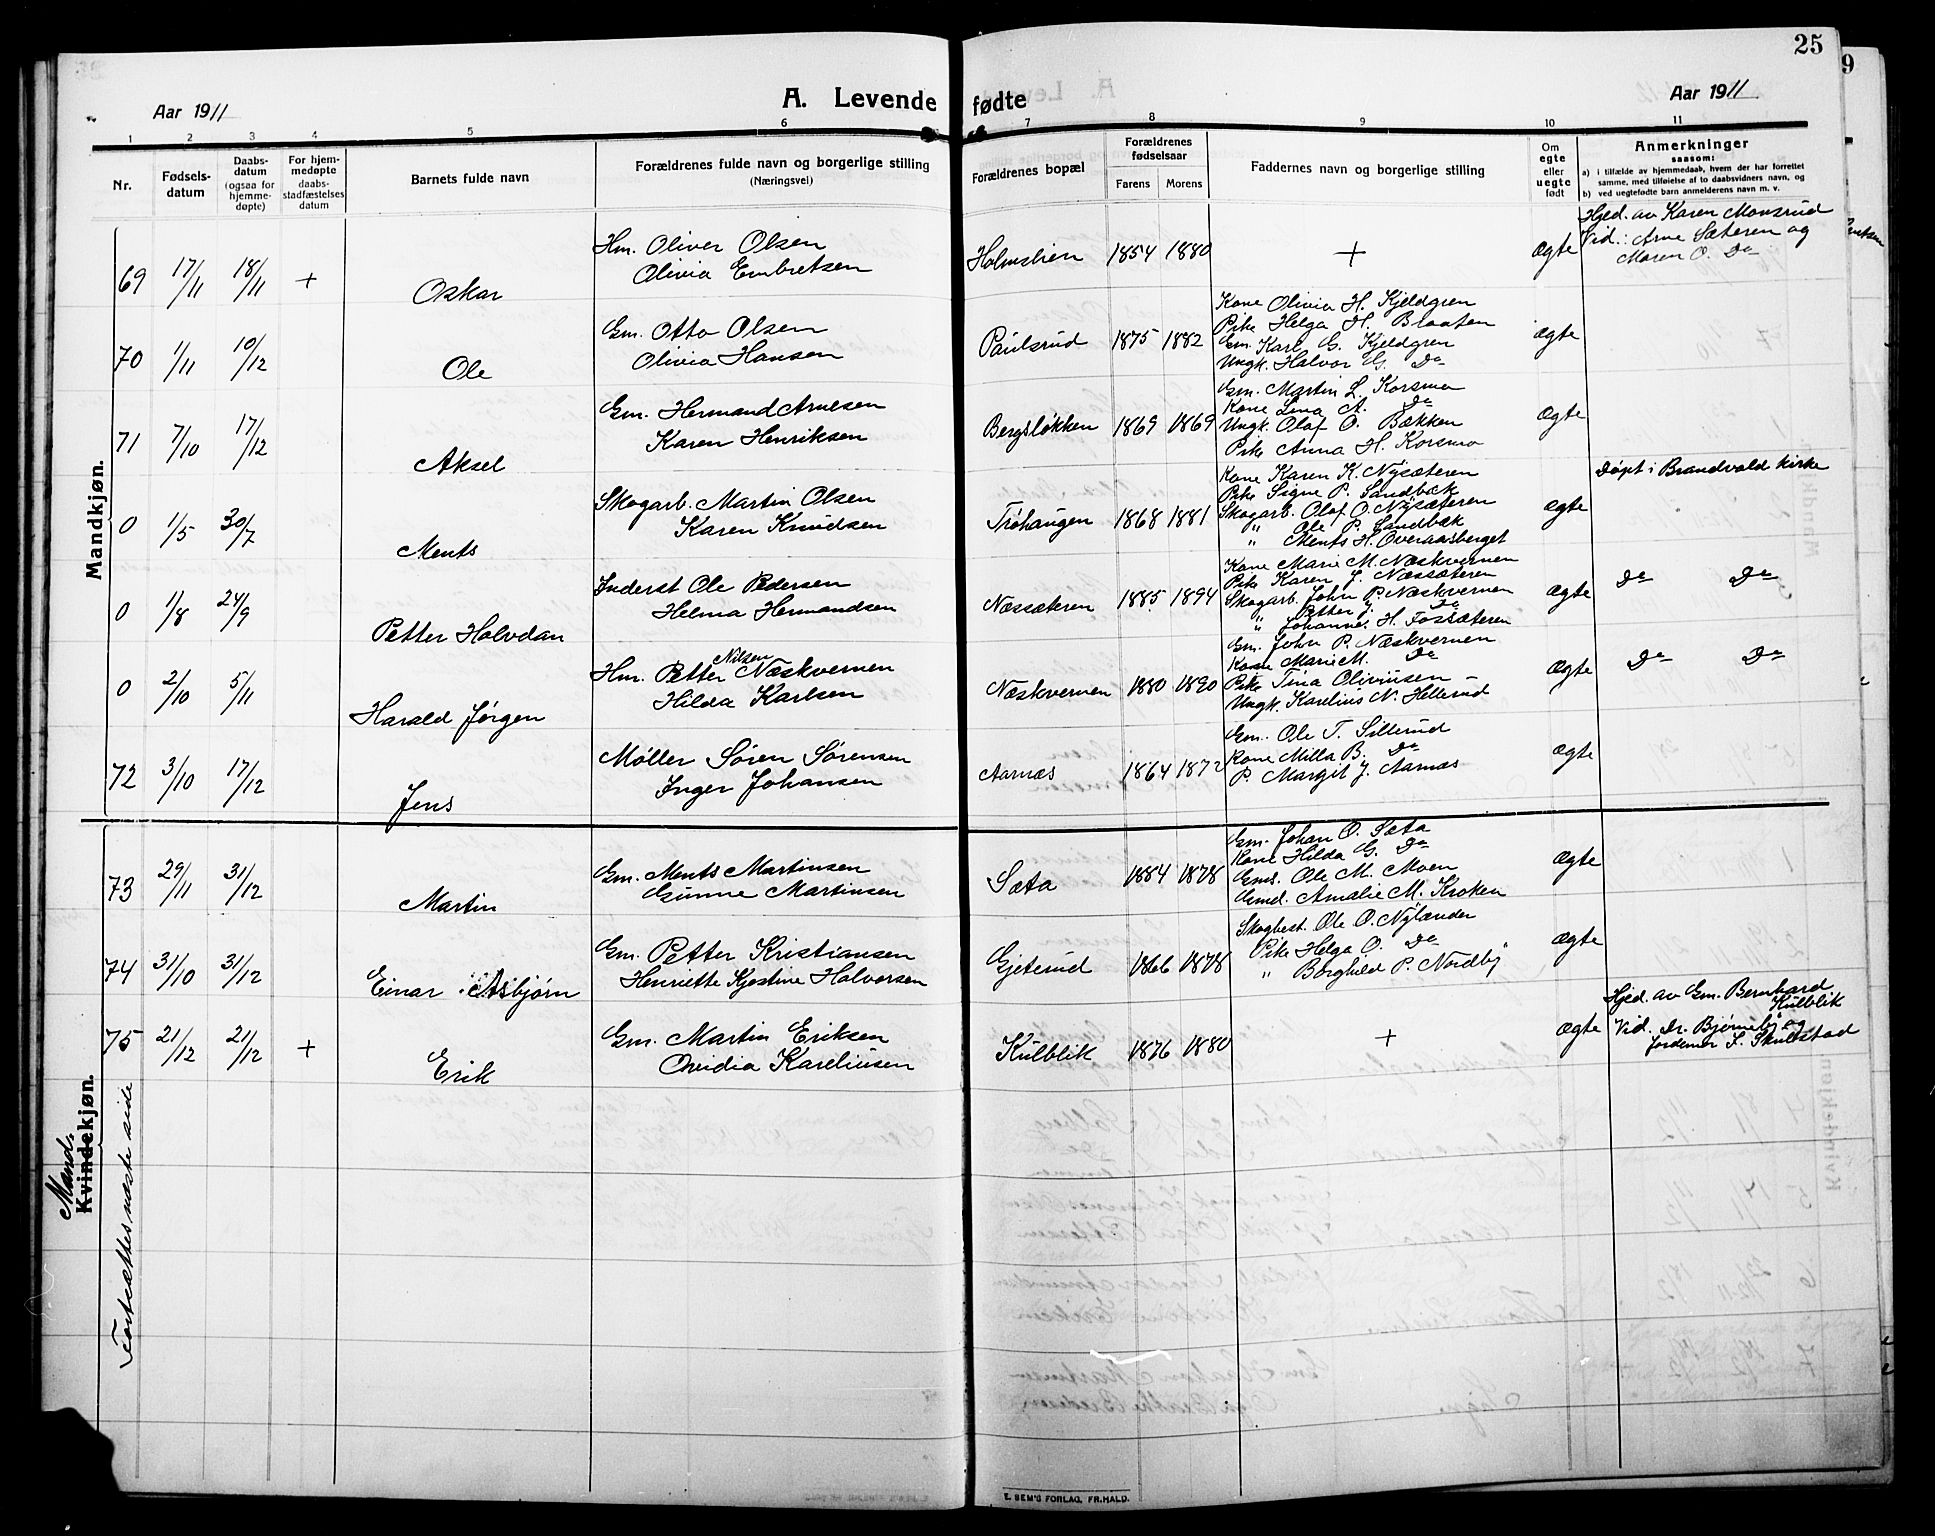 25
9
Aar 1911
A. Levende fødte
Aar 1911
1 2 3 4 5 6 7 8 9 10 11
Nr.
Fødsels-
datum
Daabs-
datum
(ogsaa for
hjemme-
døpte)
For hjem-
medøpte
daabs-
stadfæstelses
datum
Barnets fulde navn
Forældrenes fulde navn og borgerlige stilling
(Næringsvei)
Forældrenes bopæl
Forældrenes
fødselsaar
Farens Morens
Faddernes navn og borgerlige stilling
Om
egte
eller
uegte
født
Anmerkninger
saasom:
a) i tilfælde av hjemmedaab, hvem der har forrettet
samme, med tilføielse af to daabsvidners navn, og
b) ved uegtefødte barn anmelderens navn m. v.
Mandkjøn.
69 17/11 18/11 + Oskar
Hm. Oliver Olsen
Olivia Embretsen
Holmslien 1854 1880 + Ægte
Hjed. av Karen Monsrud
Vid.: Arne Sæteren og
Maren O. Do
70 1/11 10/12 Ole
Gm. Otto Olsen
Olivia Hansen
Paulsrud 1875 1882
Kone Olivia H. Kjeldgren
Pike Helga H. Braaten
Gm. Karl G. Kjeldgren
Ungk. Halvor G. Do
Ægte
71 7/10 17/12 Aksel
Gm. Hermand Arnesen
Karen Henriksen
Bergsløkken 1869 1869
Gm. Martin L. Korsmo
Kone Lina A. Do
Ungk. Olaf O. Bækken
Pike Anna H. Korsmo
Ægte
0 1/5 30/7 Ments
Skogarb. Martin Olsen
Karen Knudsen
Trøhaugen 1868 1881
Kone Karen K. Nysæteren
Pike Signe P. Sandbæk
Skogarb. Olaf O. Nysæteren
" Ole P. Sandbæk
" Ments H. Overaasberget
Ægte
Døpt i Brandvold kirke
0 1/8 24/9 Petter Halvdan
Inderst Ole Pedersen
Helma Hermandsen
Næssæteren 1885 1894
Kone Marie M. Næskvernen
Pike Karen J. Næssæteren
Skogarb. John P. Næskvernen
" Petter J. Do
" Johannes H. Fossæteren
Ægte
Do Do
0 2/10 5/11 Harald Jørgen
Hm. Petter Nilsen Næskvernen
Hilda Karlsen
Næskvernen 1880 1890
Gm. John P. Næskvernen
Kone Marie M. Do
Pike Tina Oliviusen –
Ungk. Karelius N. Hellerud
Ægte
Do Do
72 3/10 17/12 Jens
Møller Søren Sørensen
Inger Johansen
Aarnæs 1864 1872
Gm. Ole T. Sillerud
Kone Milla B. Do
P. Margit J. Aarnæs
Ægte
Mand.
Kvindekjøn.
Fortsættes næste side
73 29/11 31/12 Martin
Gm. Ments Martinsen
Gunne Martinsen
Sæta 1884 1878
Gm. Johan O. Sæta
Kone Hilda G. Do
Gms. Ole M. Moen
Gmd. Amalie M. Kroken
Ægte
74 31/10 31/12 Einar Asbjørn
Gm. Petter Kristiansen
Henriette Kjestine Halvorsen
Gjeterud 1866 1878
Skogbest. Ole O. Nylænder
Pike Helga O. Do
" Borghild P. Nordby
Ægte
75 21/12 21/12 + Erik
Gm. Martin Eriksen
Ovidia Kareliusen
Kulblik 1876 1880 + Ægte
Hjed. av Gm. Bernhard
Kulblik
Vid. Dr. Bjørneby og
Jordemor S. Skulstad
E. SEM'S FORLAG, FR.HALD.